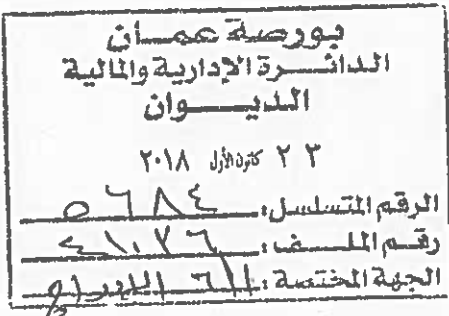 بورصة عمان
الدائرة الإدارية والمالية
الديوان
٢٣ كانون الأول ٢٠١٨
الرقم المتسلسل: ٥٦٨٤
رقم الملف: ٤١٠٢٦
الجهة المختصة: